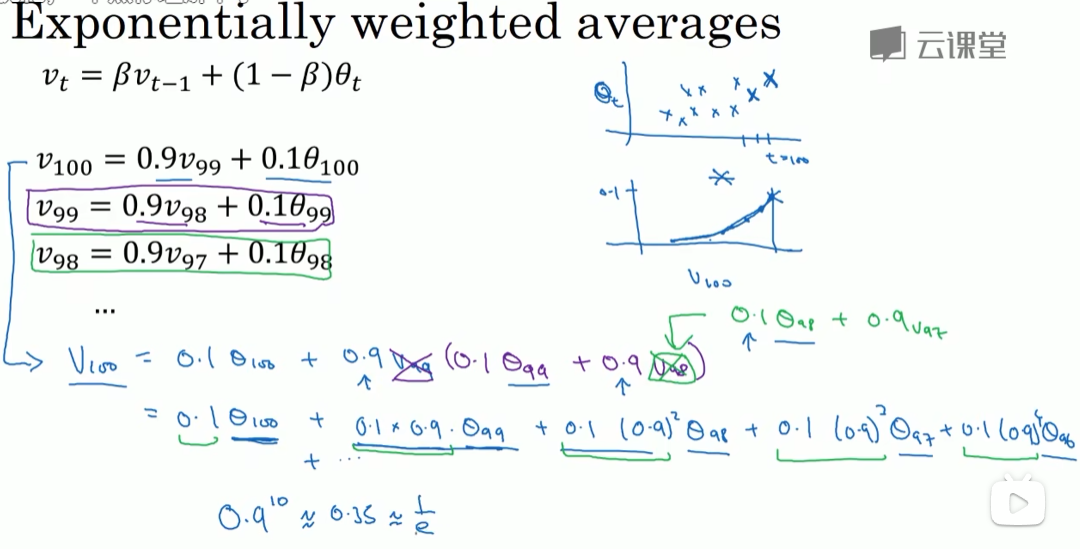 Exponentially weighted averages
云课堂
vₜ = βvₜ₋₁ + (1 − β)θₜ
θₜ
t=100
v₁₀₀ = 0.9v₉₉ + 0.1θ₁₀₀
0.1
v₉₉ = 0.9v₉₈ + 0.1θ₉₉
v₉₈ = 0.9v₉₇ + 0.1θ₉₈
V₁₀₀
...
0.1 θ₉₈ + 0.9 v₉₇
V₁₀₀ = 0.1 θ₁₀₀ + 0.9 v₉₉ (0.1 θ₉₉ + 0.9 v₉₈)
= 0.1 θ₁₀₀ + 0.1 × 0.9 · θ₉₉ + 0.1 (0.9)² θ₉₈ + 0.1 (0.9)³ θ₉₇ + 0.1 (0.9)⁴ θ₉₆
+ ...
0.9¹⁰ ≈ 0.35 ≈ 1/e